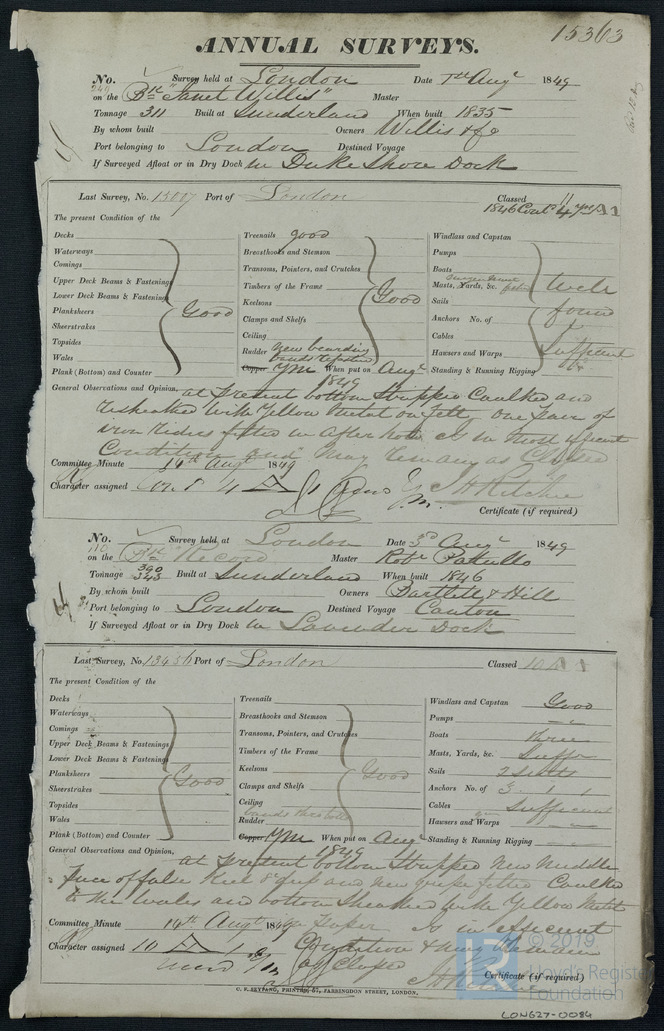 15363
ANNUAL SURVEYS.
No. Survey held at London Date 7th Augt 1849
on the Bk "Janet Willis" Master
Tonnage 311 Built at Sunderland When built 1835
By whom built Owners Willis & Co
Port belonging to London Destined Voyage
If Surveyed Afloat or in Dry Dock in Duke Shore Dock
Last Survey, No. 15007 Port of London Classed 1846 Cont 4 yrs A1
The present Condition of the
Decks
Waterways
Comings
Upper Deck Beams & Fastenings
Lower Deck Beams & Fastenings
Planksheers
Sheerstrakes
Topsides
Wales
Plank (Bottom) and Counter
Good
Treenails good
Breasthooks and Stemson
Transoms, Pointers, and Crutches
Timbers of the Frame
Keelsons
Clamps and Shelfs
Ceiling
Rudder new bearding
bands
Copper YM When put on Augt 1849
Good
Windlass and Capstan
Pumps
Boats
Masts, Yards, &c.
Sails
Anchors No. of
Cables
Hawsers and Warps
Standing & Running Rigging
well
found
&
Sufficient
General Observations and Opinion, at present bottom stripped Caulked and
resheathed with Yellow Metal on Felt, One pair of
iron riders fitted in after hold is in most efficient
Condition and may remain as Classed
Committee Minute 14th Augt 1849
Character assigned Cont 4 A 1
J H Ritchie
Certificate (if required)
No. Survey held at London Date 3d Augt 1849
on the Bk Record Master Robt Pattullo
Tonnage 390 343 Built at Sunderland When built 1846
By whom built Owners Bartlett & Hill
Port belonging to London Destined Voyage Canton
If Surveyed Afloat or in Dry Dock in Lavender Dock
Last Survey, No. 13456 Port of London Classed 10 A 1
The present Condition of the
Decks
Waterways
Comings
Upper Deck Beams & Fastenings
Lower Deck Beams & Fastenings
Planksheers
Sheerstrakes
Topsides
Wales
Plank (Bottom) and Counter
Good
Treenails
Breasthooks and Stemson
Transoms, Pointers, and Crutches
Timbers of the Frame
Keelsons
Clamps and Shelfs
Ceiling
Rudder bands
Copper YM When put on Augt 1849
Good
Windlass and Capstan Good
Pumps
Boats three
Masts, Yards, &c. Sufft
Sails 2 suits
Anchors No. of 3
Cables Sufficient
Hawsers and Warps
Standing & Running Rigging
General Observations and Opinion, at present bottom Stripped New Middle
piece of false Keel and new gripe fitted Caulked
to the wales and bottom sheathed with Yellow Metal
Committee Minute 14th Augt 1849 on paper is in efficient
Character assigned 10 A 1 Condition & may remain
as Classed
Certificate (if required)
C. F. SEYFANG, PRINTER, 57, FARRINGDON STREET, LONDON.
© 2019
Lloyd's Register
Foundation
LON627-0084